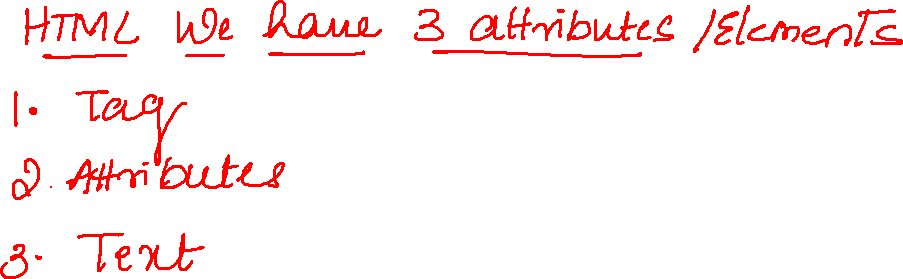 HTML We have 3 attributes /Elements
1. Tag
2. Attributes
3. Text